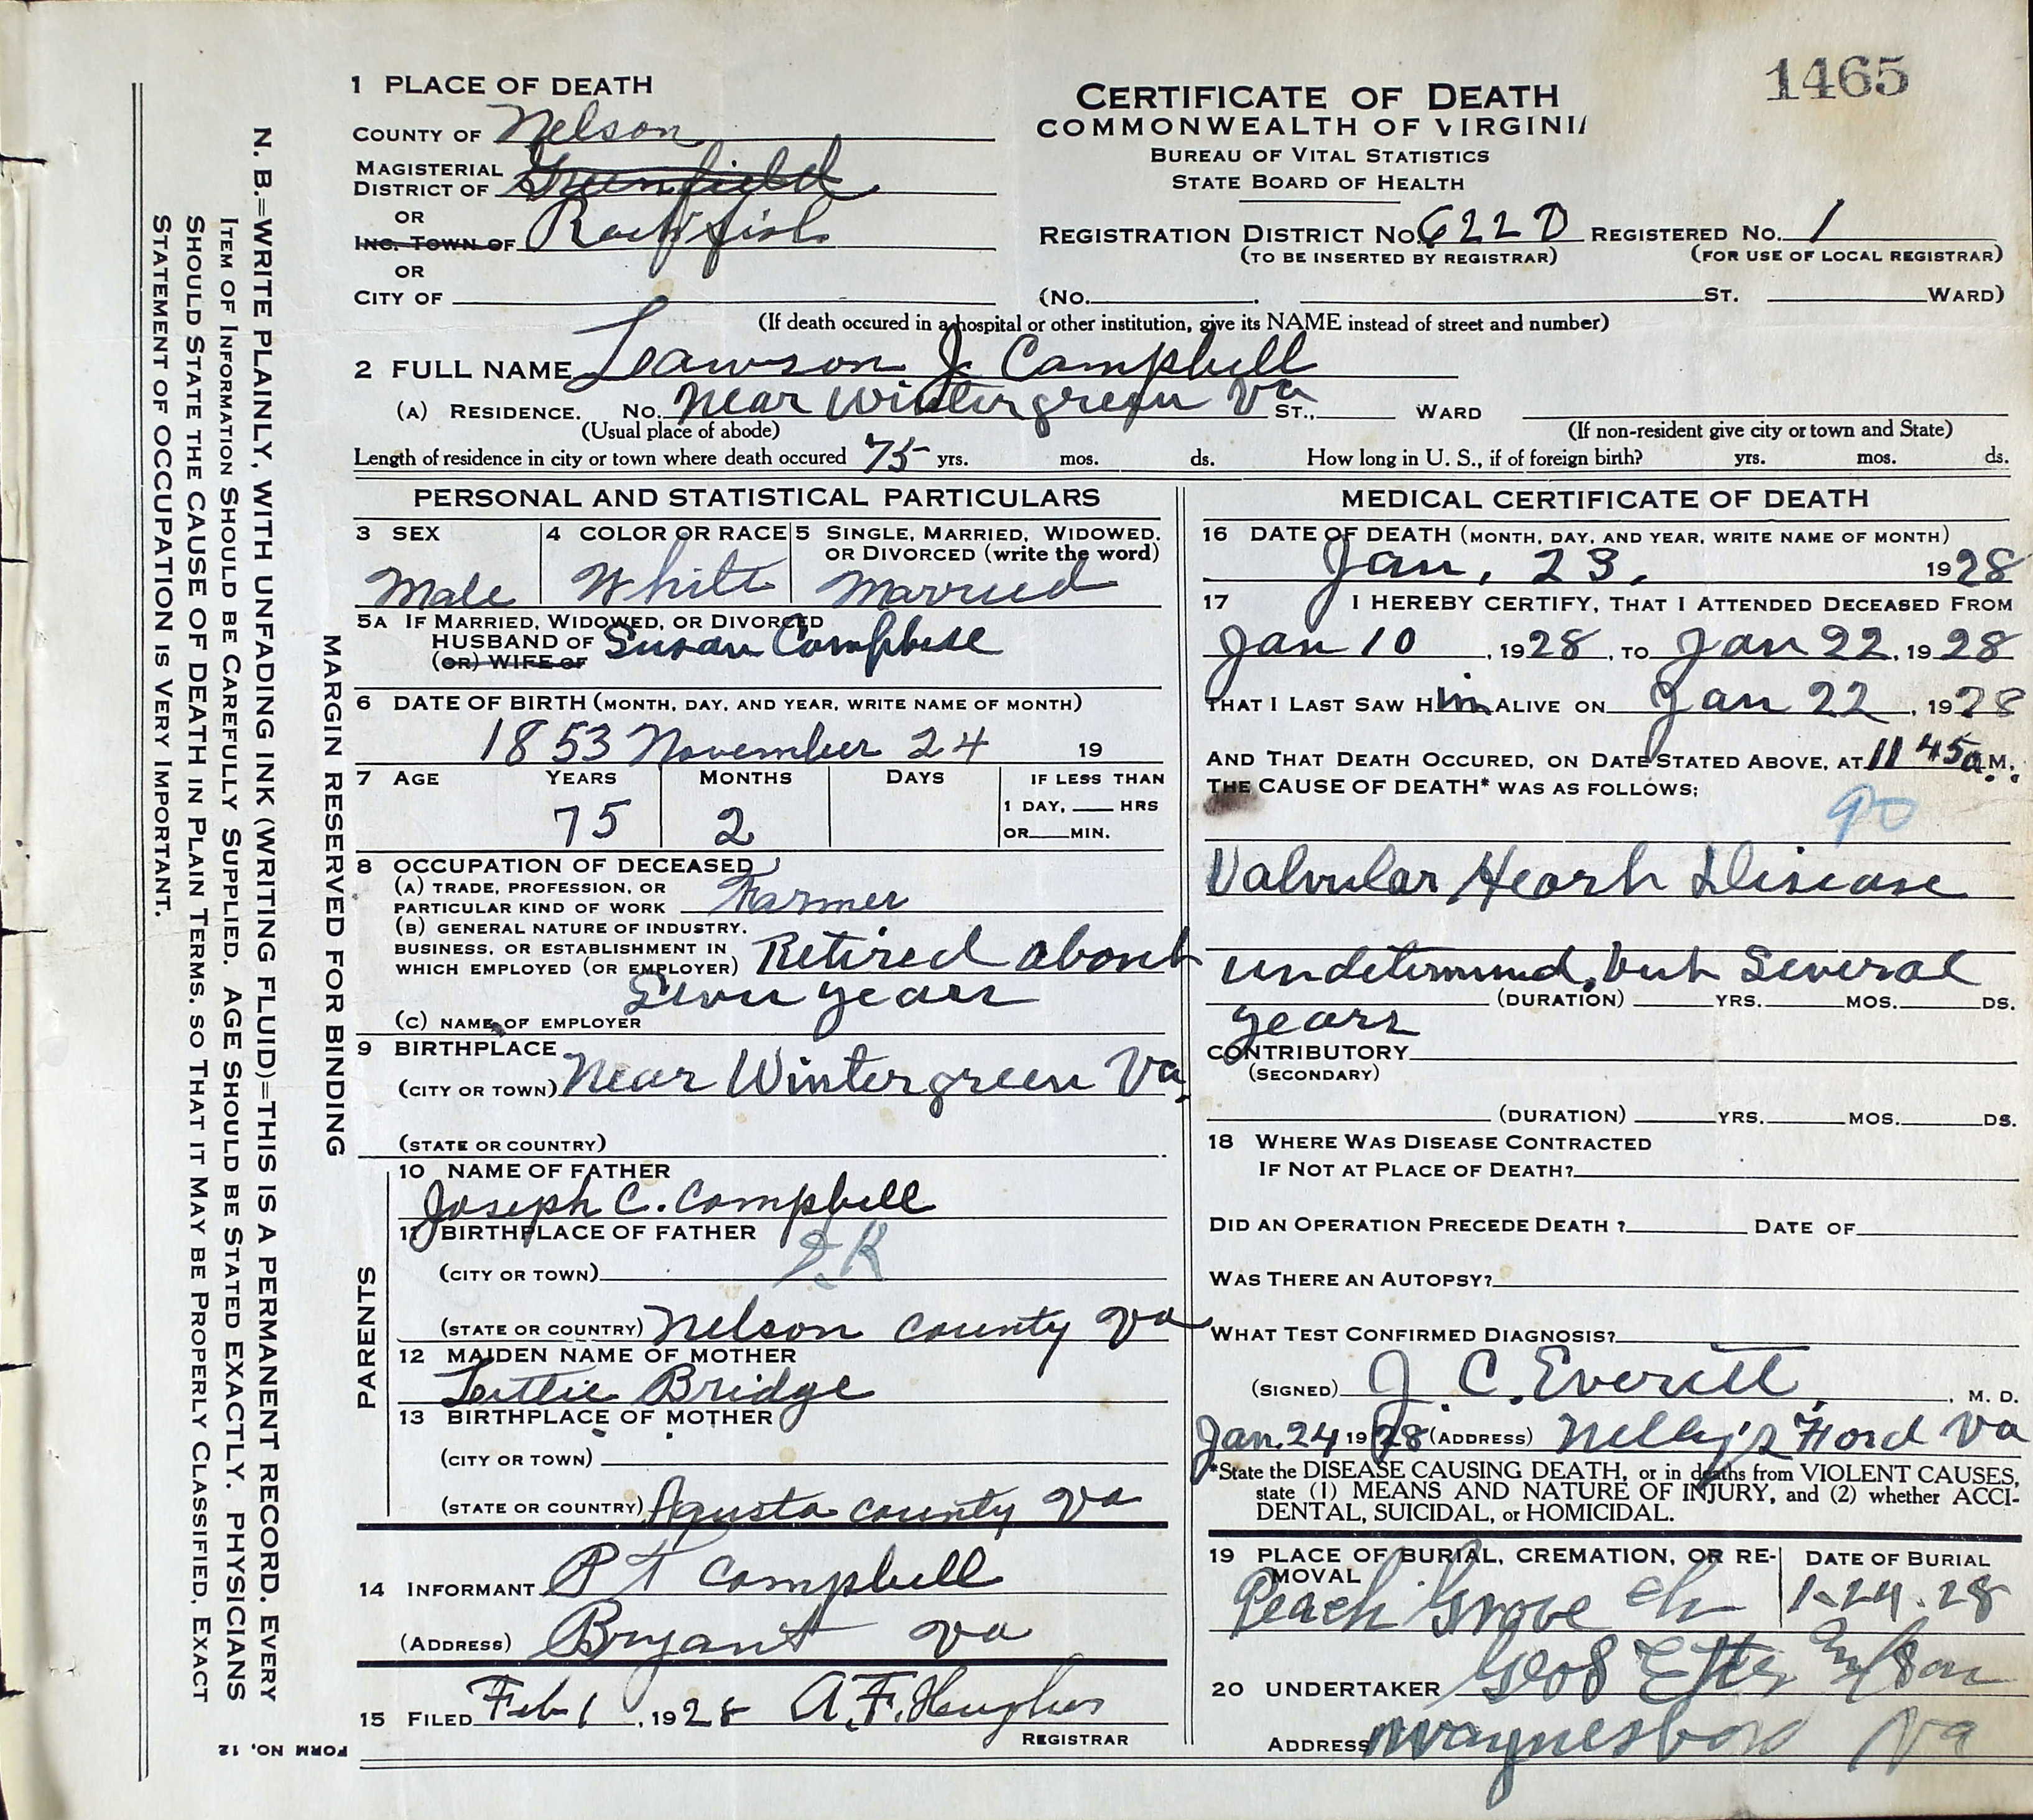 1465
1 PLACE OF DEATH
COUNTY OF Nelson
MAGISTERIAL DISTRICT OF Greenfield
OR
INC. TOWN OF Rockfish
OR
CITY OF
CERTIFICATE OF DEATH
COMMONWEALTH OF VIRGINIA
BUREAU OF VITAL STATISTICS
STATE BOARD OF HEALTH
REGISTRATION DISTRICT NO. 622 D REGISTERED NO. 1
(TO BE INSERTED BY REGISTRAR) (FOR USE OF LOCAL REGISTRAR)
(NO. ST. WARD)
(If death occured in a hospital or other institution, give its NAME instead of street and number)
2 FULL NAME Lawson J. Campbell
(A) RESIDENCE. NO. Near Wintergreen Va ST., WARD
(Usual place of abode) (If non-resident give city or town and State)
Length of residence in city or town where death occured 75 yrs. mos. ds. How long in U. S., if of foreign birth? yrs. mos. ds.
PERSONAL AND STATISTICAL PARTICULARS
3 SEX 4 COLOR OR RACE 5 SINGLE, MARRIED, WIDOWED, OR DIVORCED (write the word)
Male White Married
5A IF MARRIED, WIDOWED, OR DIVORCED
HUSBAND OF Susan Campbell
(OR) WIFE OF
6 DATE OF BIRTH (MONTH, DAY, AND YEAR, WRITE NAME OF MONTH)
1853 November 24 19
7 AGE YEARS MONTHS DAYS IF LESS THAN
1 DAY, HRS
75 2
OR MIN.
8 OCCUPATION OF DECEASED
(A) TRADE, PROFESSION, OR
PARTICULAR KIND OF WORK Farmer
(B) GENERAL NATURE OF INDUSTRY,
BUSINESS, OR ESTABLISHMENT IN
WHICH EMPLOYED (OR EMPLOYER) Retired about
Seven years
(C) NAME OF EMPLOYER
9 BIRTHPLACE
(CITY OR TOWN) Near Wintergreen Va.
(STATE OR COUNTRY)
PARENTS
10 NAME OF FATHER
Joseph C. Campbell
11 BIRTHPLACE OF FATHER
(CITY OR TOWN)
(STATE OR COUNTRY) Nelson county va
12 MAIDEN NAME OF MOTHER
Bridge
13 BIRTHPLACE OF MOTHER
(CITY OR TOWN)
(STATE OR COUNTRY) Agusta county va
14 INFORMANT P T Campbell
(ADDRESS) Bryant va
15 FILED Feb 1, 1928 A. F. Hughes
REGISTRAR
MEDICAL CERTIFICATE OF DEATH
16 DATE OF DEATH (MONTH, DAY, AND YEAR, WRITE NAME OF MONTH)
Jan, 23, 1928
17 I HEREBY CERTIFY, THAT I ATTENDED DECEASED FROM
Jan 10, 1928, TO Jan 22, 1928
THAT I LAST SAW HIM ALIVE ON Jan 22, 1928
AND THAT DEATH OCCURED, ON DATE STATED ABOVE, AT 11 45 a M.
THE CAUSE OF DEATH* WAS AS FOLLOWS:
90
Valvular Heart Disease
undetermined, but several
(DURATION) YRS. MOS. DS.
years
CONTRIBUTORY
(SECONDARY)
(DURATION) YRS. MOS. DS.
18 WHERE WAS DISEASE CONTRACTED
IF NOT AT PLACE OF DEATH?
DID AN OPERATION PRECEDE DEATH ? DATE OF
WAS THERE AN AUTOPSY?
WHAT TEST CONFIRMED DIAGNOSIS?
(SIGNED) J. C. Everett, M. D.
Jan. 24 1928 (ADDRESS) Nelly's Ford Va
*State the DISEASE CAUSING DEATH, or in deaths from VIOLENT CAUSES,
state (1) MEANS AND NATURE OF INJURY, and (2) whether ACCI-
DENTAL, SUICIDAL, or HOMICIDAL.
19 PLACE OF BURIAL, CREMATION, OR RE-
MOVAL
DATE OF BURIAL
Peach Grove Ch 1-24-28
20 UNDERTAKER Son
ADDRESS Waynesboro Va
MARGIN RESERVED FOR BINDING
N. B.=WRITE PLAINLY, WITH UNFADING INK (WRITING FLUID)=THIS IS A PERMANENT RECORD. EVERY
ITEM OF INFORMATION SHOULD BE CAREFULLY SUPPLIED. AGE SHOULD BE STATED EXACTLY. PHYSICIANS
SHOULD STATE THE CAUSE OF DEATH IN PLAIN TERMS, SO THAT IT MAY BE PROPERLY CLASSIFIED. EXACT
STATEMENT OF OCCUPATION IS VERY IMPORTANT.
FORM NO. 12